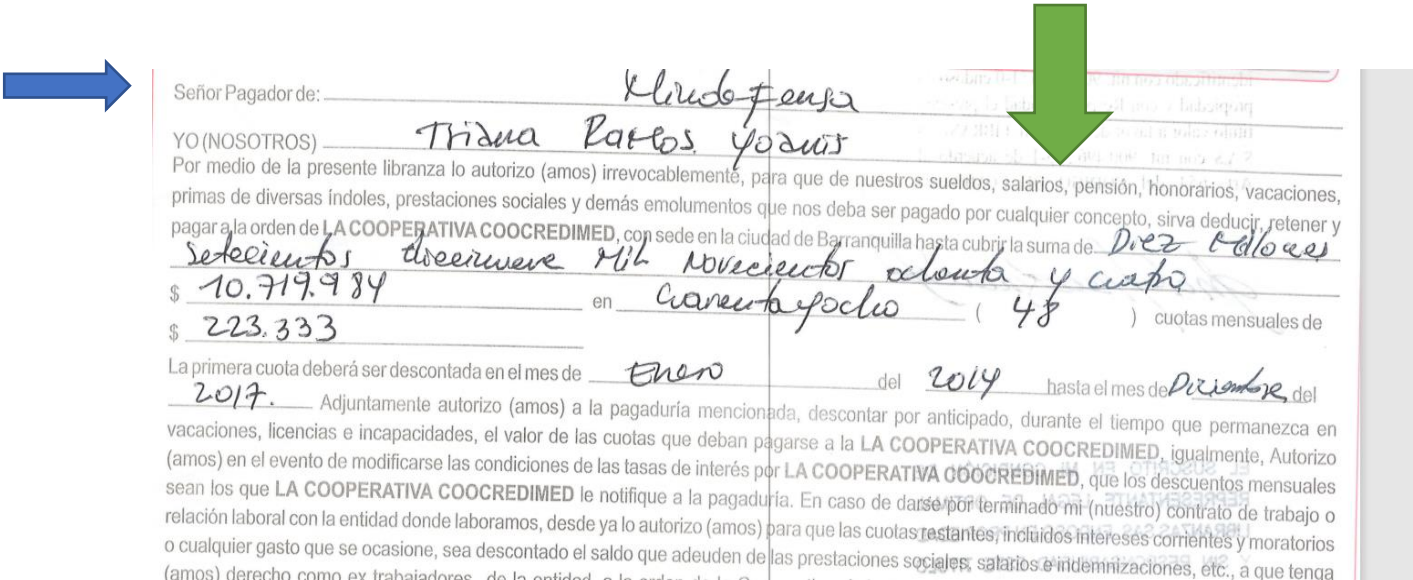 Señor Pagador de: Mindefensa
YO (NOSOTROS) Triana Yoanis
Por medio de la presente libranza lo autorizo (amos) irrevocablemente, para que de nuestros sueldos, salarios, pensión, honorarios, vacaciones,
primas de diversas índoles, prestaciones sociales y demás emolumentos que nos deba ser pagado por cualquier concepto, sirva deducir, retener y
pagar a la orden de LA COOPERATIVA COOCREDIMED, con sede en la ciudad de Barranquilla hasta cubrir la suma de Diez Millones
Setecientos diecinueve Mil Novecientos ochenta y cuatro
$ 10.719.984 en Cuarenta y ocho ( 48 ) cuotas mensuales de
$ 223.333
La primera cuota deberá ser descontada en el mes de Enero del 2014 hasta el mes de Diciembre del
2017. Adjuntamente autorizo (amos) a la pagaduría mencionada, descontar por anticipado, durante el tiempo que permanezca en
vacaciones, licencias e incapacidades, el valor de las cuotas que deban pagarse a la LA COOPERATIVA COOCREDIMED, igualmente, Autorizo
(amos) en el evento de modificarse las condiciones de las tasas de interés por LA COOPERATIVA COOCREDIMED, que los descuentos mensuales
sean los que LA COOPERATIVA COOCREDIMED le notifique a la pagaduría. En caso de darse por terminado mi (nuestro) contrato de trabajo o
relación laboral con la entidad donde laboramos, desde ya lo autorizo (amos) para que las cuotas restantes, incluidos intereses corrientes y moratorios
o cualquier gasto que se ocasione, sea descontado el saldo que adeuden de las prestaciones sociales, salarios e indemnizaciones, etc., a que tenga
(amos) derecho como ex trabajadores, de la entidad, a la orden de la